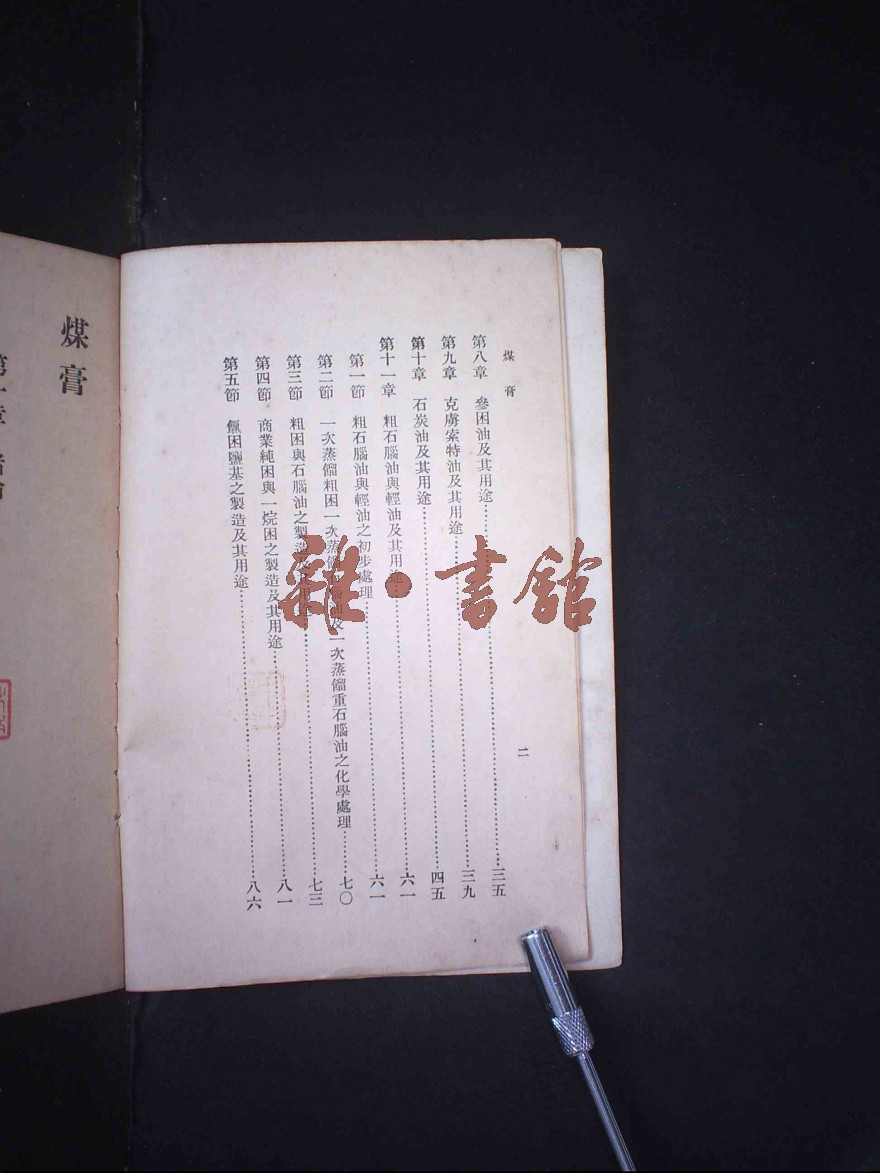 煤膏
二
第八章 參困油及其用途…………三五
第九章 克虜索特油及其用途…………三九
第十章 石炭油及其用途…………四五
第十一章 粗石腦油與輕油及其用途…………六一
第一節 粗石腦油與輕油之初步處理…………六一
第二節 一次蒸餾粗困一次蒸餾石腦油及一次蒸餾重石腦油之化學處理……七〇
第三節 粗困與石腦油之製造及其用途…………七三
第四節 商業純困與一烷困之製造及其用途…………八一
第五節 困鹽基之製造及其用途…………八六
煤膏
第一章
雜·書館